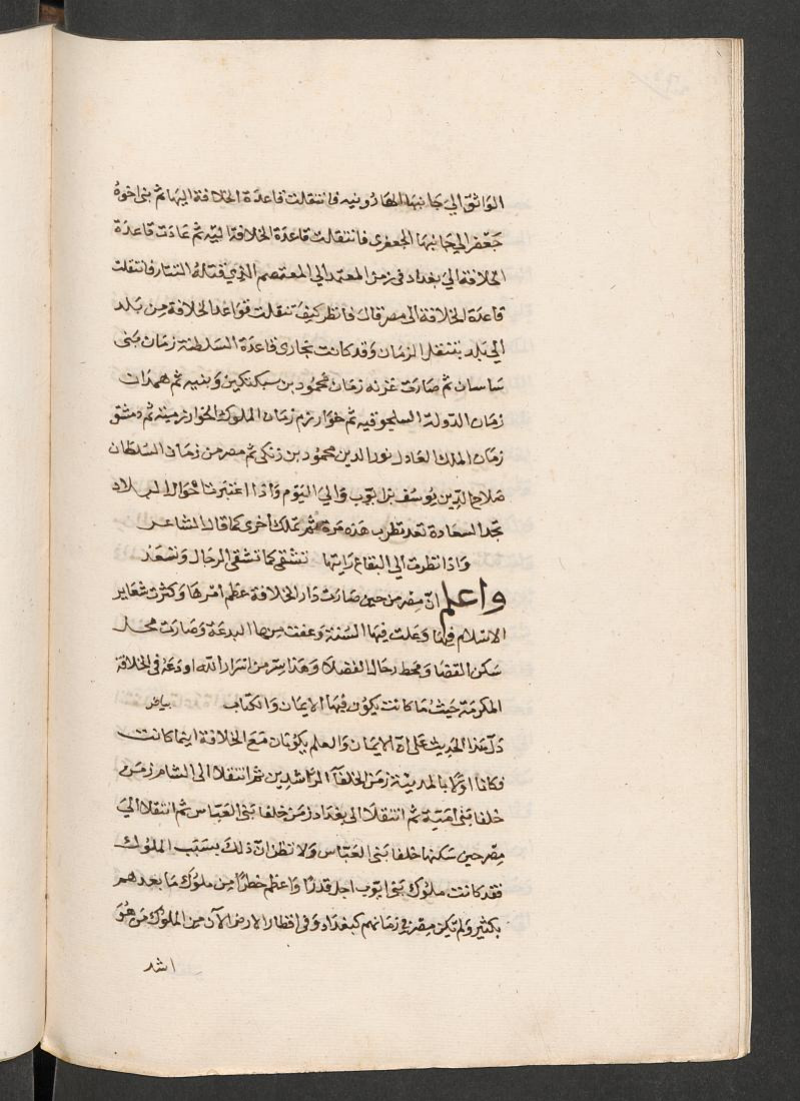 الواثق الي جانبها الهارونيه فانتقلت قاعدة الخلافة اليها ثم بنى اخوهُ
جعفر الي جانبها الجعفرى فانتقلت قاعدة الخلافة اليه ثم عادت قاعدة
الخلافة الي بغداد فى زمن المعتمد الي المعتصم الذي قتله التتار فانتقلت
قاعدة الخلافة الى مصر قال فانظر كيف تنقلت قواعد الخلافة من بلد
الي بلد بتنقل الزمان وقد كانت بخارى قاعدة السلطنة زمان بنى
ساسان ثم صارت غزنه زمان محمود بن سبكتكين وبنيه ثم همدان
زمان الدولة السلجوقيه ثم خوارزم زمان الملوك الخوارزميه ثم دمشق
زمان الملك العادل نور الدين محمود بن زنكى ثم مصر من زمان السلطان
صلاح الدين يوسف بن ايوب والي اليوم واذا اعتبرنا احوال البلاد
تجد السعادة تعد تطرب هذه مرة ثم تملك اخرى كما قال الشاعر
واذا نظرت الي البقاع رايتها تشقى كما تشقى الرجال وتسعد
واعلم ان مصر من حين صارت دار الخلافة عظم امرها وكثرت شعاير
الاسلام فيها وعلت فيها السنة وعفت منها البدعة وصارت محل
سكن القضا ومحط رحال الفضلا وهذا سر من اسرار الله اودعه فى الخلافة
المكرمة حيث ما كانت يكون فيها الايمان والكتاب بياض
دل هذا الحديث على ان الايمان والعلم يكونان مع الخلافة اينما كانت
فكانا اولا بالمدينة زمن الخلفآ الراشدين ثم انتقلا الى الشام زمن
خلفا بنى امية ثم انتقلا الى بغداد زمن خلفا بنى العباس ثم انتقلا الي
مصر حين سكنها خلفا بنى العباس ولا تظن ان ذلك بسبب الملوك
فقد كانت ملوك بنى ايوب اجل قدرا واعظم خطرا من ملوك ما بعدهم
بكثير ولم تكن مصر فى زمانهم كبغداد وفى اقطار الارض الآن من الملوك من هو
اشد